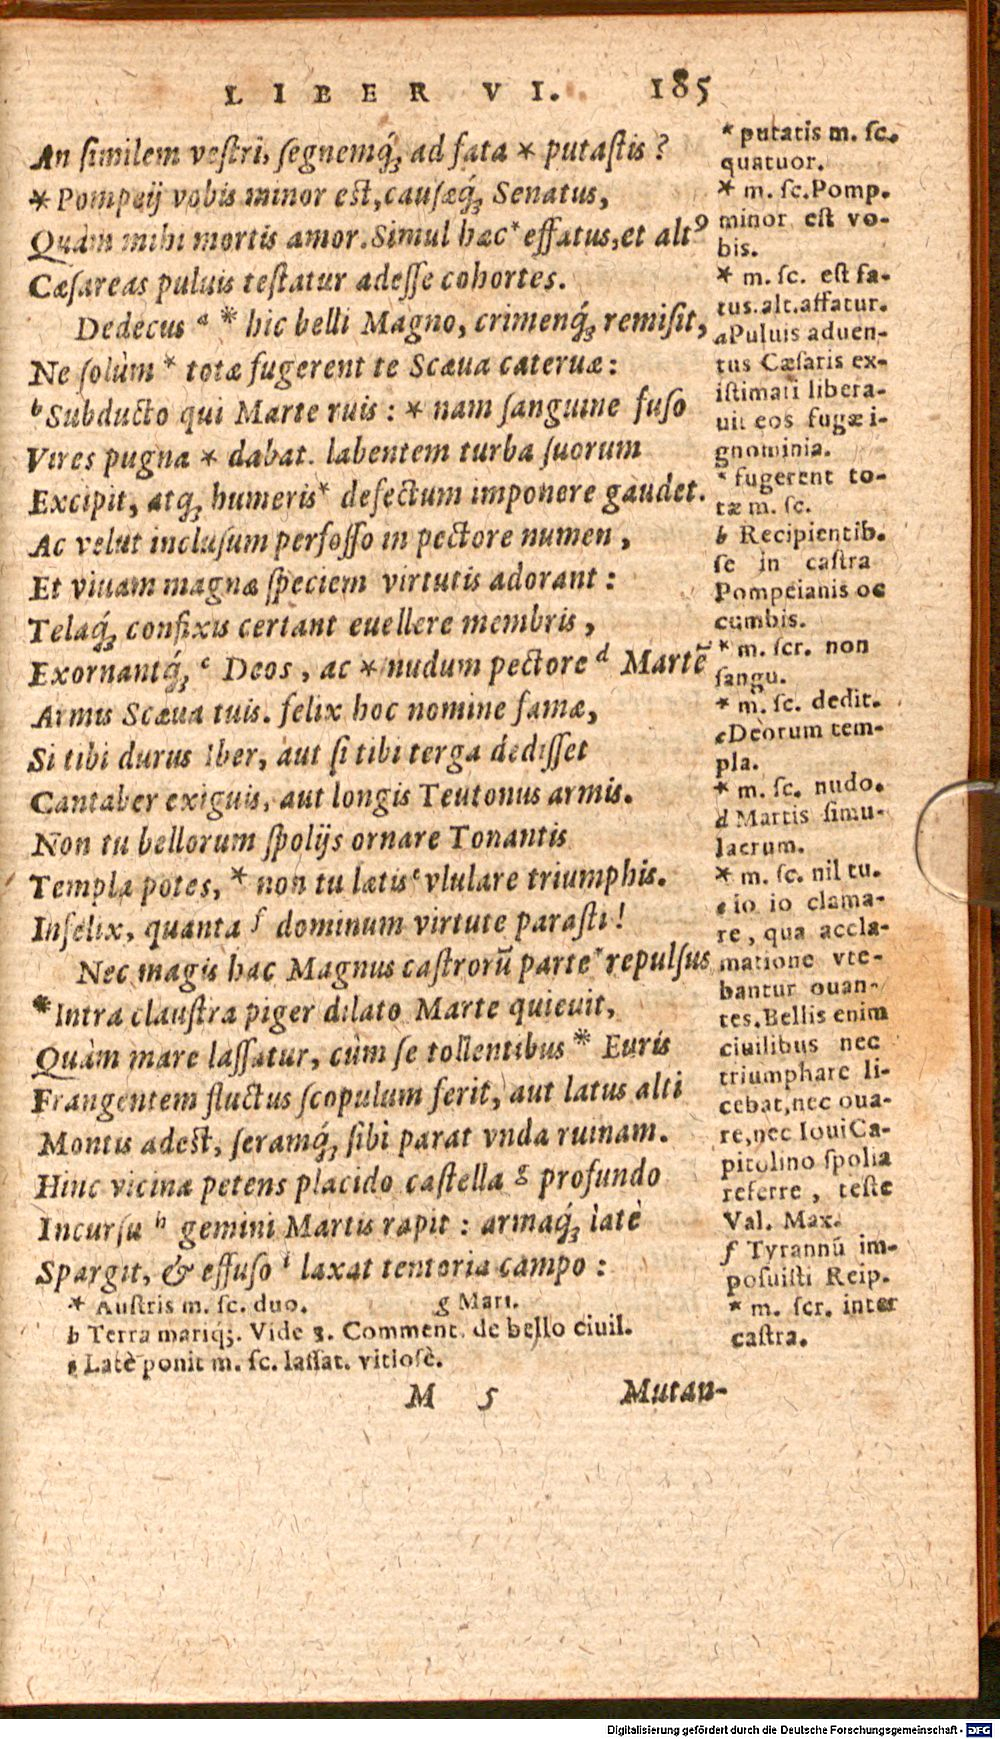 LIBER VI. 185
An ſimilem veſtri, ſegnemq́ꝫ ad fata * putaſtis ?
* Pompeij vobis minor est, cauſæq́ꝫ Senatus,
Quàm mihi mortis amor. Simul hæc * effatus, et altꝰ
Cæſareas puluis teſtatur adeſſe cohortes.
Dedecus a * hic belli Magno, crimenq́ꝫ remiſit,
Ne ſolùm * totæ fugerent te Scæua cateruæ :
b Subducto qui Marte ruis : * nam ſanguine fuſo
Vires pugna * dabat. labentem turba ſuorum
Excipit, atqꝫ humeris * defectum imponere gaudet.
Ac velut incluſum perfoſſo in pectore numen ,
Et viuam magnæ ſpeciem virtutis adorant :
Telaq́ꝫ confixis certant euellere membris ,
Exornantq́ꝫ c Deos , ac * nudum pectore d Martē
Armis Scæua tuis. felix hoc nomine famæ,
Si tibi durus Iber, aut ſi tibi terga dediſſet
Cantaber exiguis, aut longis Teutonus armis.
Non tu bellorum ſpolijs ornare Tonantis
Templa potes, * non tu lætis e vlulare triumphis.
Infelix, quanta f dominum virtute paraſti !
Nec magis hac Magnus caſtrorū parte * repulſus
* Intra clauſtra piger dilato Marte quieuit,
Quàm mare laſſatur, cùm ſe tollentibus * Euris
Frangentem fluctus ſcopulum ferit, aut latus alti
Montis adest, ſeramq́ꝫ ſibi parat vnda ruinam.
Hinc vicina petens placido caſtella g profundo
Incurſu h gemini Martis rapit : armaq́ꝫ latè
Spargit, & effuſo i laxat tentoria campo :
* Auſtris m. ſc. duo. g Mari.
h Terra mariqꝫ. Vide 3. Comment. de bello ciuil.
i Latè ponit m. ſc. laſſat. vitioſè.
M 5 Mutan-
* putatis m. ſc.
quatuor.
* m. ſc. Pomp.
minor eſt vo-
bis.
* m. ſc. eſt fa-
tus. alt. affatur.
a Puluis aduen-
tus Cæſaris ex-
iſtimati libera-
uit eos fugæ i-
gnominia.
* fugerent to-
tæ m. ſc.
b Recipientib.
ſe in caſtra
Pompeianis oc
cumbis.
* m. ſcr. non
ſangu.
* m. ſc. dedit.
c Deorum tem-
pla.
* m. ſc. nudo.
d Martis ſimu-
lacrum.
* m. ſc. nil tu.
e io io clama-
re, qua accla-
matione vte-
bantur ouan-
tes. Bellis enim
ciuilibus nec
triumphare li-
cebat, nec oua-
re, nec Ioui Ca-
pitolino ſpolia
referre , teſte
Val. Max.
f Tyrannū im-
poſuiſti Reip.
* m. ſcr. inter
caſtra.
Digitalisierung gefördert durch die Deutsche Forschungsgemeinschaft - DFG